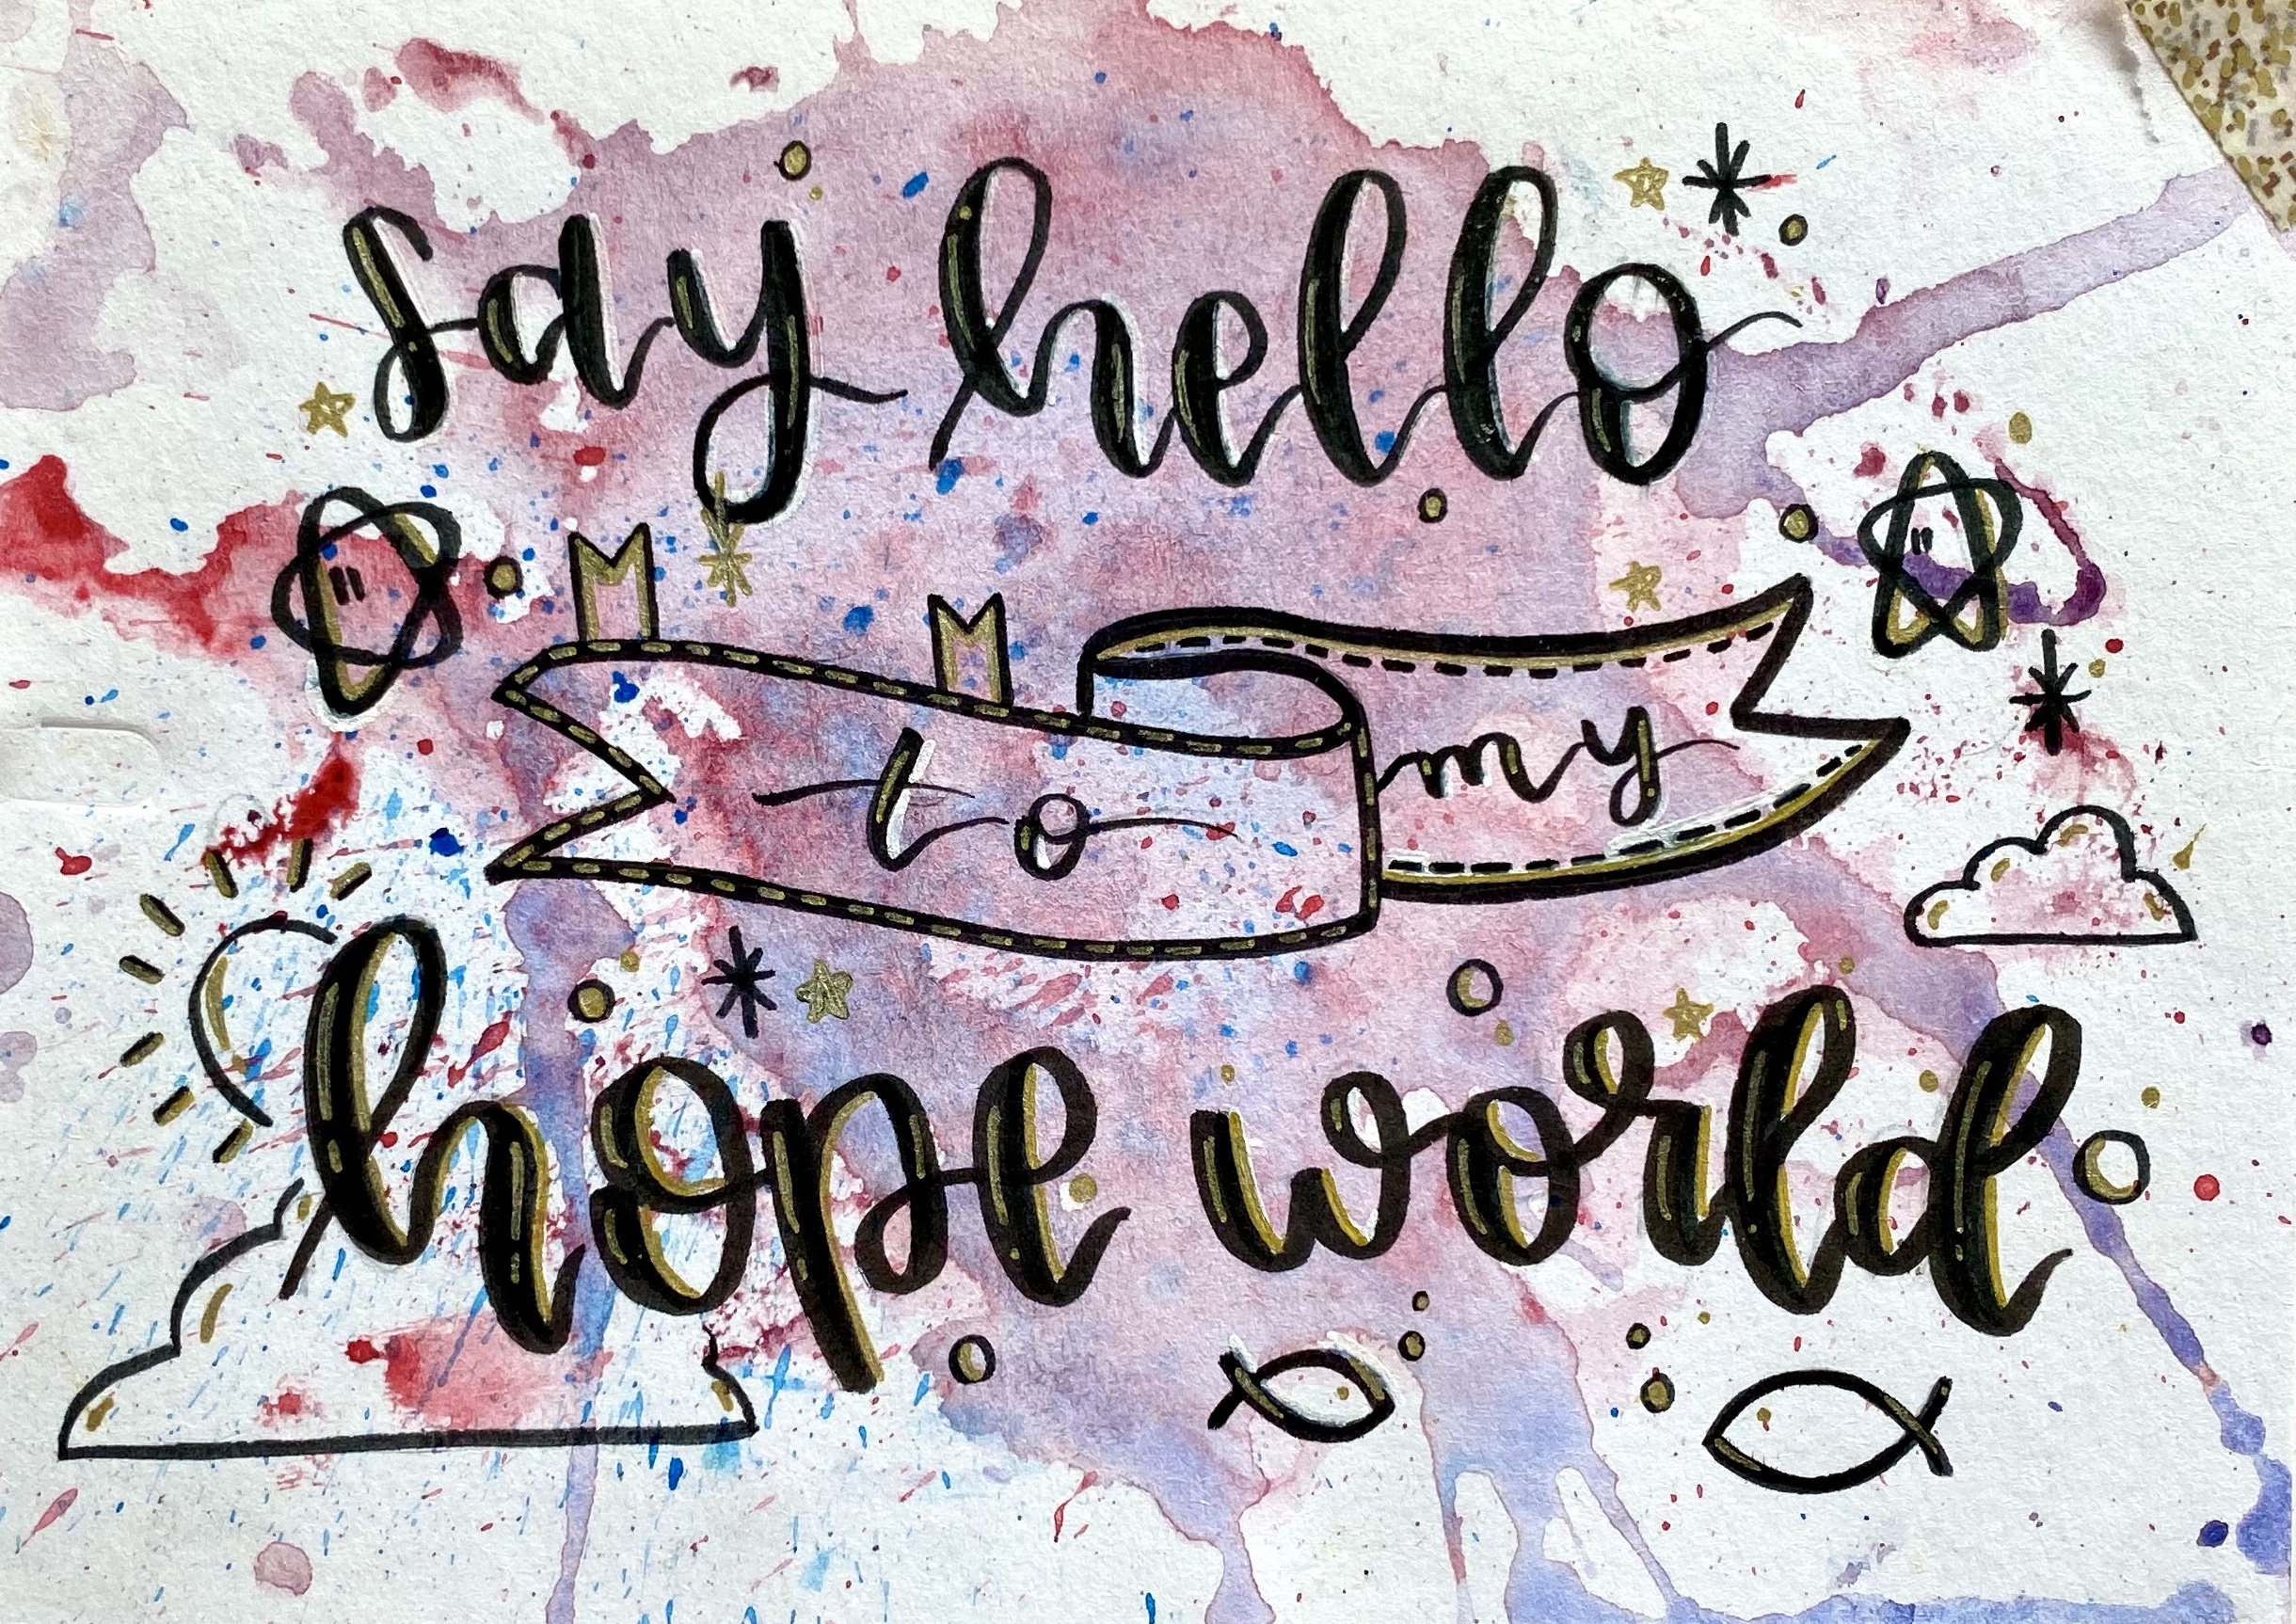 say hello
to my
hope world